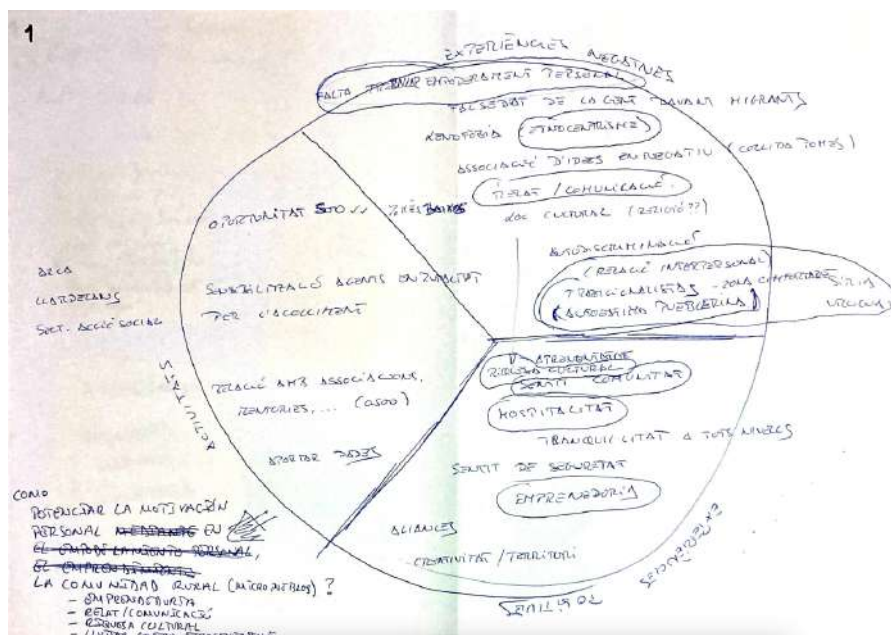 1
EXPERIÈNCIES NEGATIVES
FALTA EMPODERAMENT PERSONAL
FALSEDAT DE LA GENT DAVANT MIGRANTS
XENOFÒBIA (ETNOCENTRISME)
ASSOCIACIÓ D'IDEES EN NEGATIU (COLLIDA POMES)
RELAT / COMUNICACIÓ.
XOC CULTURAL (RELIGIÓ??)
AUTODISCRIMINACIÓ
(RELACIÓ INTERPERSONAL
TRADICIONALISTAS - ZONA CONFORTABLE
(AUTOESTIMA PUEBLERINA)
SÍRIA
OPORTUNITAT
SENSIBILITZACIÓ AGENTS EN IGUALTAT
PER L'ACOLLIMENT
LLARDECANS
SECT. ACCIÓ SOCIAL
ACTIVITATS
RELACIÓ AMB ASSOCIACIONS,
... (ASOC)
APORTAR DADES
RIQUESA CULTURAL
SENTIT COMUNITAT
HOSPITALITAT
TRANQUILITAT A TOTS NIVELLS
SENTIT DE SEGURETAT
EMPRENEDORIA
ALIANCES
- CREATIVITAT / TERRITORI
EXPERIÈNCIES
POSITIVES
COMO
POTENCIAR LA MOTIVACIÓN
PERSONAL MEDIANTE EN
EL EMPODERAMIENTO PERSONAL,
EL EMPRENDIMIENTO
LA COMUNIDAD RURAL (MICROPUEBLOS) ?
- EMPRENEDURIA
- RELAT/COMUNICACIÓ
- RIQUESA CULTURAL